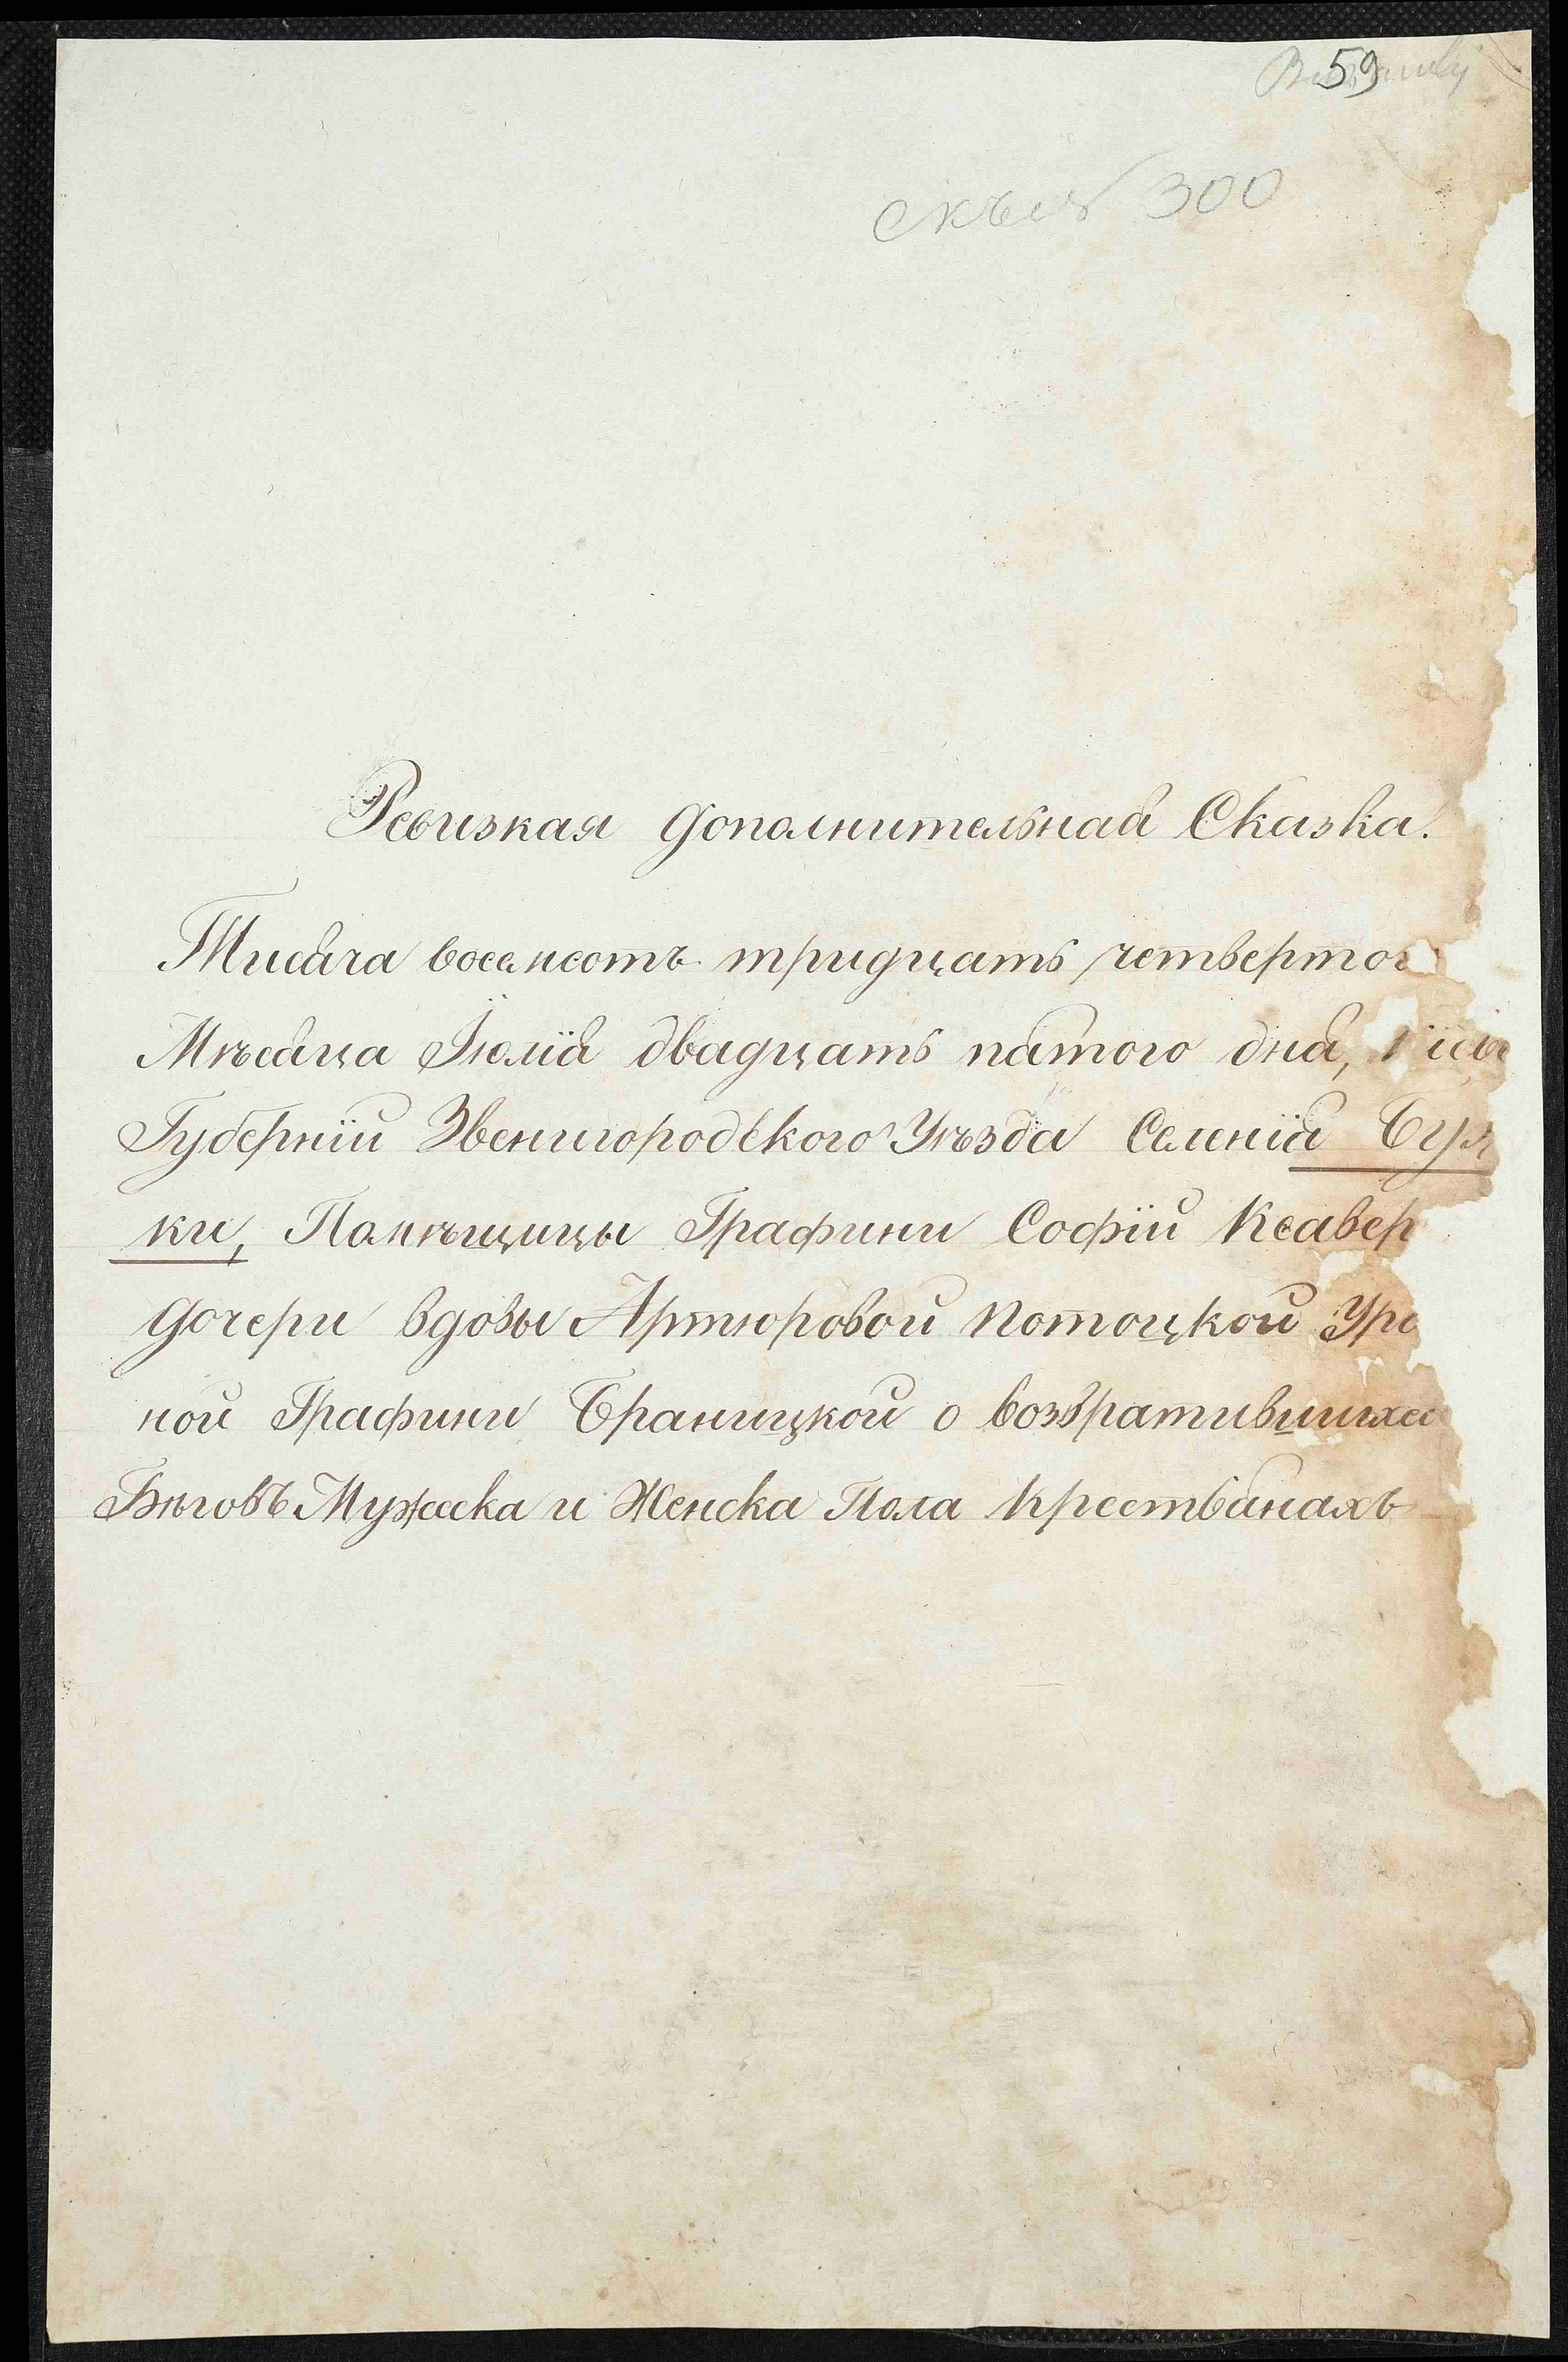 59
300
Ревизкая дополнительная Сказка.
Тисяча восемсотъ тридцать четвертог
Мѣсяца Іюлія двадцать пятого дня,
Губерніи Звенигородского Уѣзда Селенія Буж
ки, Помѣщицы Графини Софіи Ксавер
дочери вдовы Артюровой Потоцкой Уро
ной Графини Браницкой о возвратившихся
Бѣговъ Мужеска и Женска Пола Крестьянахъ